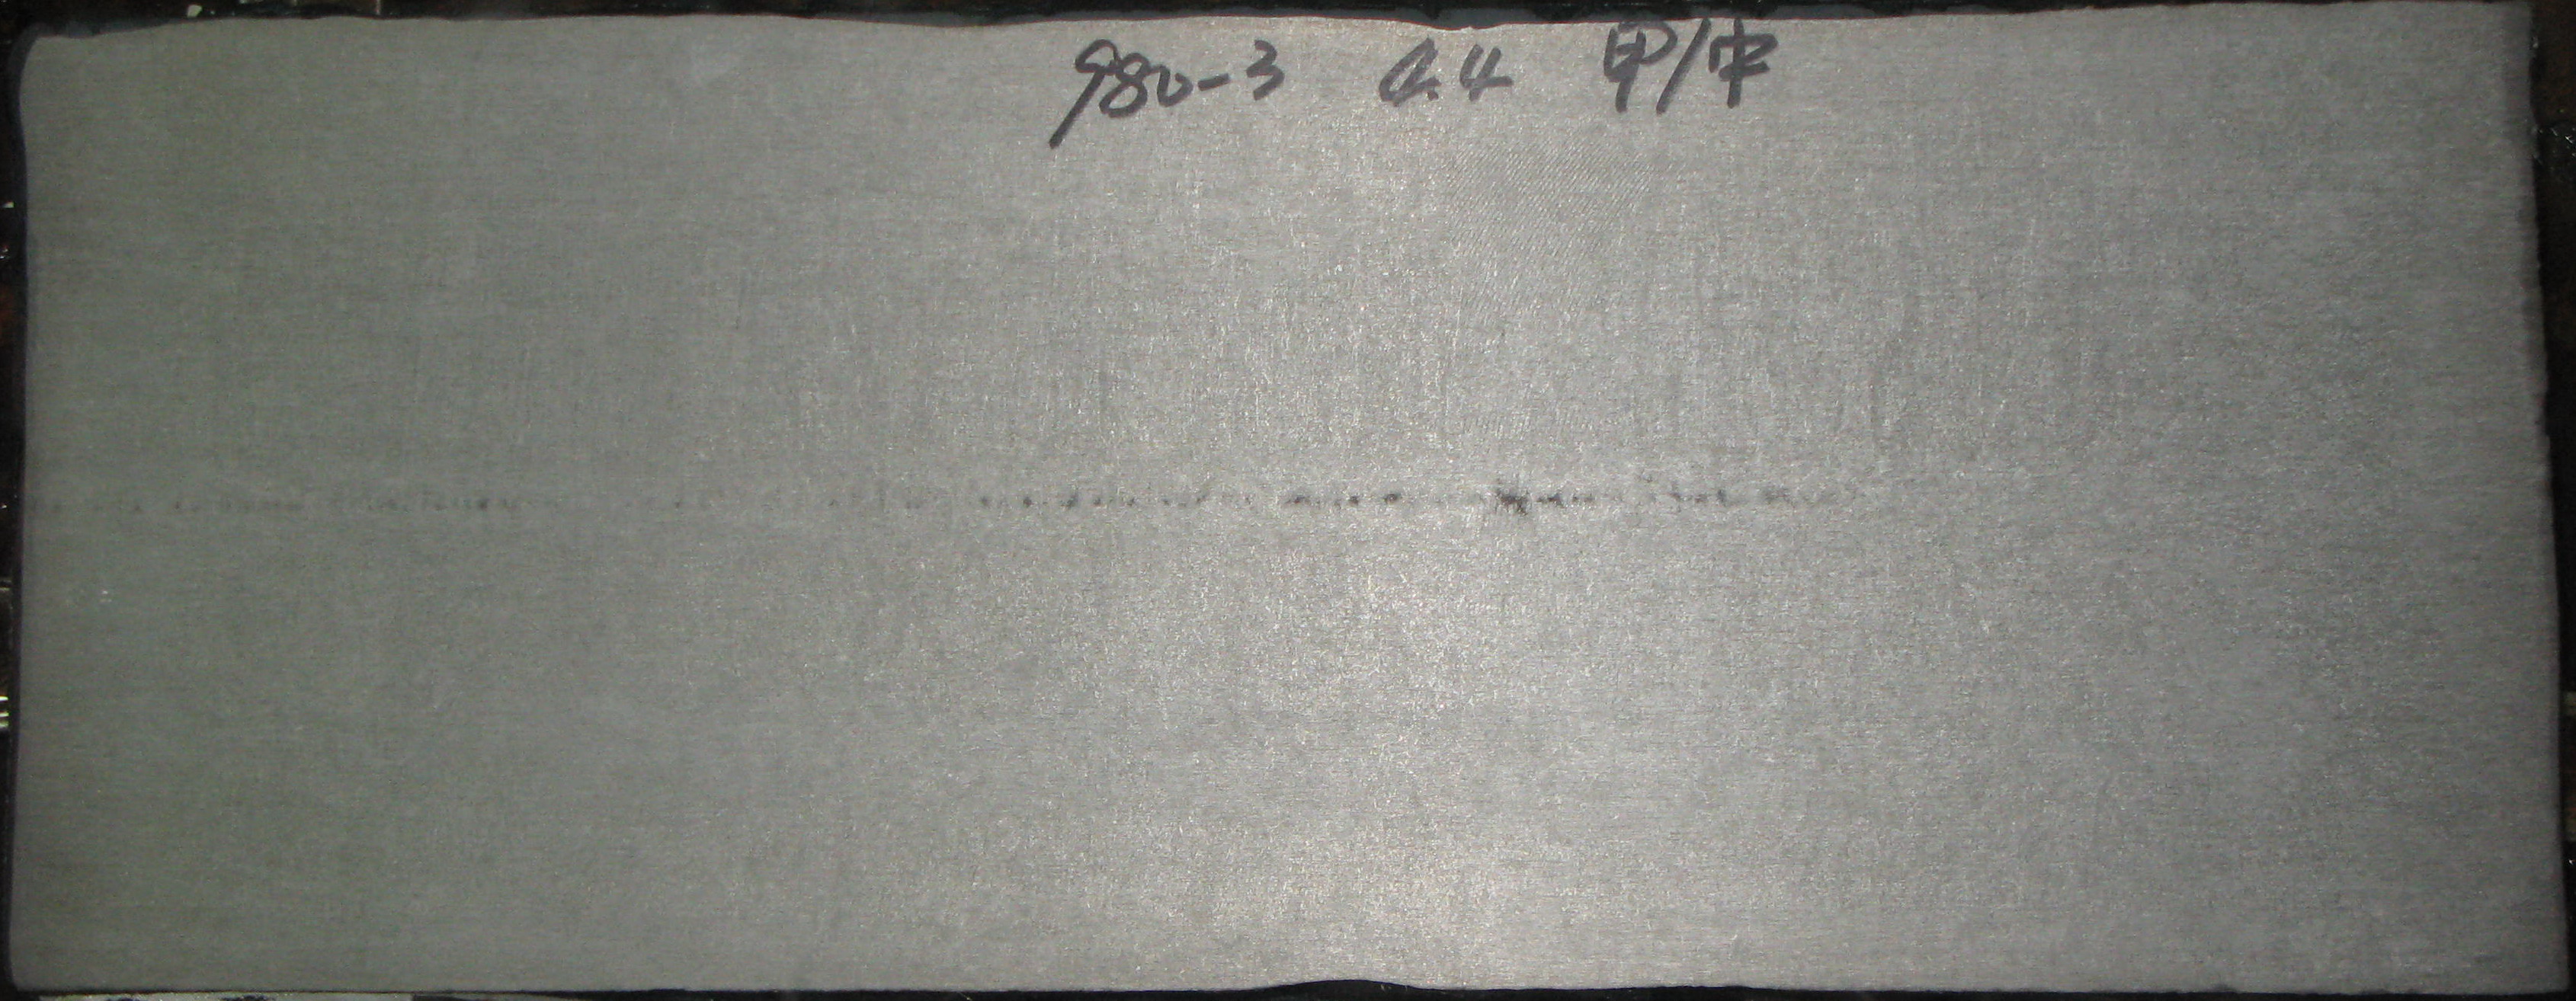 980-3 4.4 甲/中